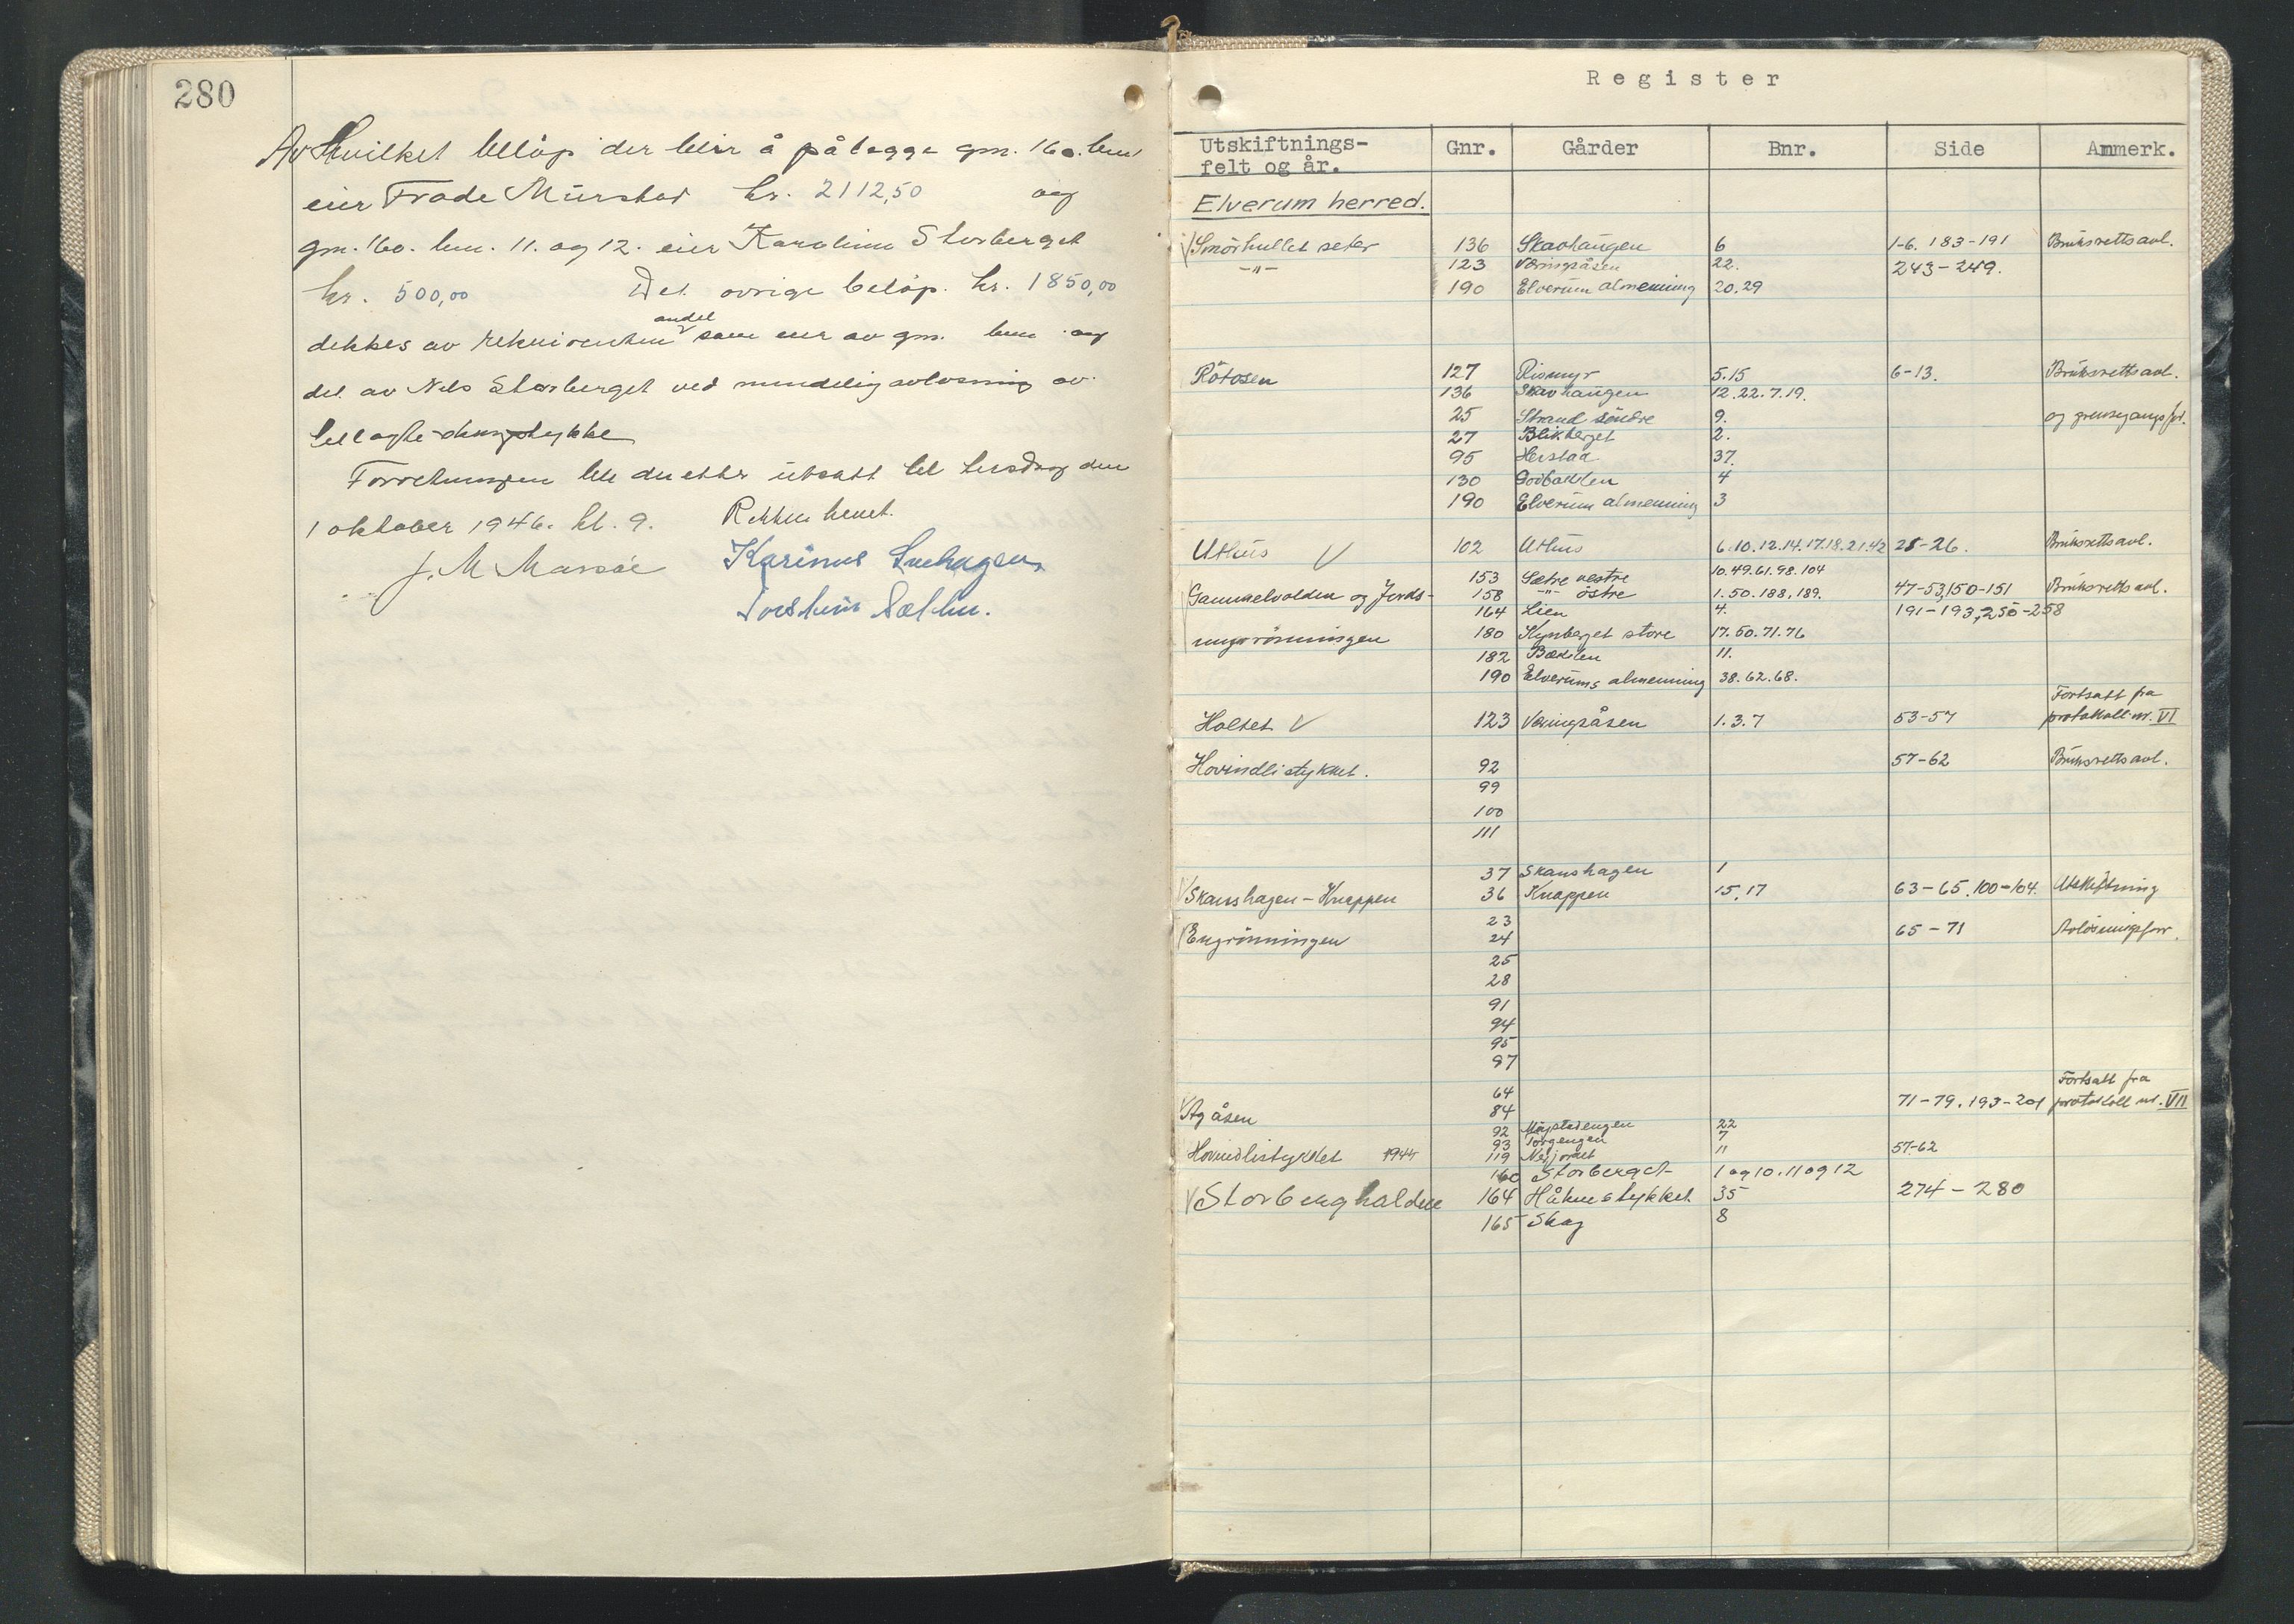 280
Av Hvilket beløp der blir å pålegge gnr. 160. bnr 1
eier Frode Mürstad kr. 2112,50 og
gnr. 160. bnr. 11. og 12. eier Karoline Storberget
kr. 500,00 Det øvrige beløp. kr. 1850,00
andel
dekkes av rekvirenten som eier av gnr. bnr og
det av Nils Storberget ved mindelig avløsning av
tillagte
Forretningen ble deretter utsatt til tirsdag den
1 oktober 1946. kl. 9. Retten hevet.
J. M. Karinus
Register
Utskiftnings- Gnr. Gårder Bnr. Side Ammerk.
felt og år.
Elverum herred.
Smörhullet seter 136 Skavhaugen 6 1-6. 183-191 Bruksrettsavl.
-"- 123 Væringsåsen 22. 243-249.
190 Elverum almenning 20.29
Rötosen 127 Rismyr 5.15 6-13. Bruksrettsavl.
136 Skavhaugen 12.22.7.19.
25 Strand söndre 9. og grensegangsfor.
27 Blikberget 2.
95 Herstad 37.
130 4
190 Elverum almenning 3
Uthus V 102 Uthus 6.10.12.14.17.18.21.42 25-26. Bruksrettsavl.
153 Sætre vestre 10.49.61.98.104
Gammelvolden og Jords- 158 -"- östre 1.50.188.189. 47-53,150-151 Bruksrettsavl.
164 Lien 4. 191-193,250-258
180 Kynberget store 17.50.71.76
182 Bækken 11.
190 Elverums almenning 38.62.68.
Fortsatt fra
Holtet V 123 Væringsåsen 1.3.7 53-57 protokoll nr. VI
Hovindlistykket. 92 57-62 Bruksrettsavl.
99
100
111
37 Skanshagen 1
Skanshagen - Knappen 36 Knappen 15.17 63-65.100-104. Utskiftning
23
Engrönningen 24 65-71 Avlösningsforr.
25
28
91
94
95
97
64 Fortsatt fra
Agåsen 84 71-79. 193-201 protokoll nr. VII
92 Mögstadengen 22
93 Torgengen 7
Hovindlistykket 1944 119 11 57-62
160 Storberget 1 og 10. 11 og 12
Storberghaldene 164 Håkenstykket 35 274-280
165 Skog 8